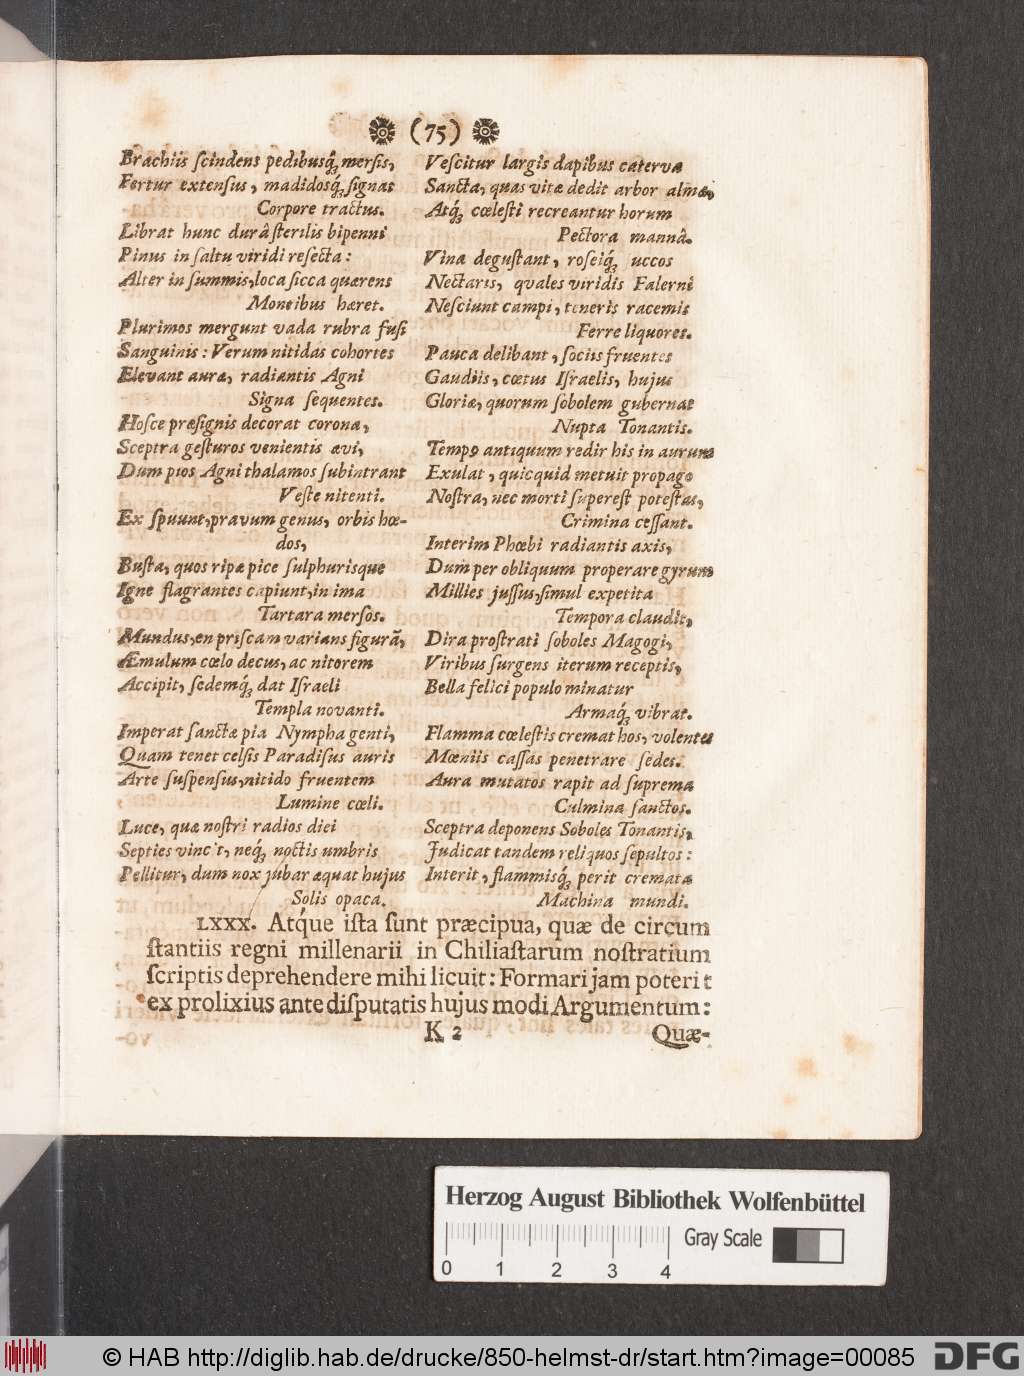 (75)
Brachiis ſcindens pedibusq́; merſis,
Fertur extenſus, madidosq́; ſignat
Corpore tractus.
Librat hunc durâ ſterilis bipenni
Pinus in ſaltu viridi reſecta:
Alter in ſummis, loca ſicca quærens
Montibus hæret.
Plurimos mergunt vada rubra fuſi
Sanguinis: Verum nitidas cohortes
Elevant auræ, radiantis Agni
Signa ſequentes.
Hoſce præſignis decorat corona,
Sceptra geſturos venientis ævi,
Dum pios Agni thalamos ſubintrant
Veſte nitenti.
Ex ſpuunt, pravum genus, orbis hœ-
dos,
Buſta, quos ripæ pice ſulphurisque
Igne flagrantes capiunt, in ima
Tartara merſos.
Mundus, en priſcam varians figurã,
Æmulum cœlo decus, ac nitorem
Accipit, ſedemq́; dat Iſraeli
Templa novanti.
Imperat ſanctæ pia Nympha genti,
Quam tenet celſis Paradiſus auris
Arte ſuſpenſus, nitido fruentem
Lumine cœli.
Luce, quæ noſtri radios diei
Septies vincit, neq́; noctis umbris
Pellitur, dum nox jubar æquat hujus
Solis opaca.
Veſcitur largis dapibus caterva
Sancta, quas vitæ dedit arbor almæ,
Atq́; cœleſti recreantur horum
Pectora mannâ.
Vina deguſtant, roſeiq́; uccos
Nectaris, quales viridis Falerni
Neſciunt campi, teneris racemis
Ferre liquores.
Pauca delibant, ſociis fruentes
Gaudiis, cœtus Iſraelis, hujus
Gloriæ, quorum ſobolem gubernat
Nupta Tonantis.
Tempo antiquum redit his in aurum
Exulat, quicquid metuit propago
Noſtra, nec morti ſupereſt poteſtas,
Crimina ceſſant.
Interim Phœbi radiantis axis,
Dum per obliquum properare gyrum
Millies juſſus, ſimul expetita
Tempora claudit,
Dira proſtrati ſoboles Magogi,
Viribus ſurgens iterum receptis,
Bella felici populo minatur
Armaq́; vibrat.
Flamma cœleſtis cremat hos, volentes
Mœniis caſſas penetrare ſedes.
Aura mutatos rapit ad ſuprema
Culmina ſanctos.
Sceptra deponens Soboles Tonantis,
Judicat tandem reliquos ſepultos:
Interit, flammisq́; perit cremata
Machina mundi.
LXXX. Atq́ue iſta ſunt præcipua, quæ de circum
ſtantiis regni millenarii in Chiliaſtarum noſtratium
ſcriptis deprehendere mihi licuit: Formari jam poterit
ex prolixius ante diſputatis hujus modi Argumentum:
K 2
Quæ-
Herzog August Bibliothek Wolfenbüttel
Gray Scale
0 1 2 3 4
© HAB http://diglib.hab.de/drucke/850-helmst-dr/start.htm?image=00085
DFG